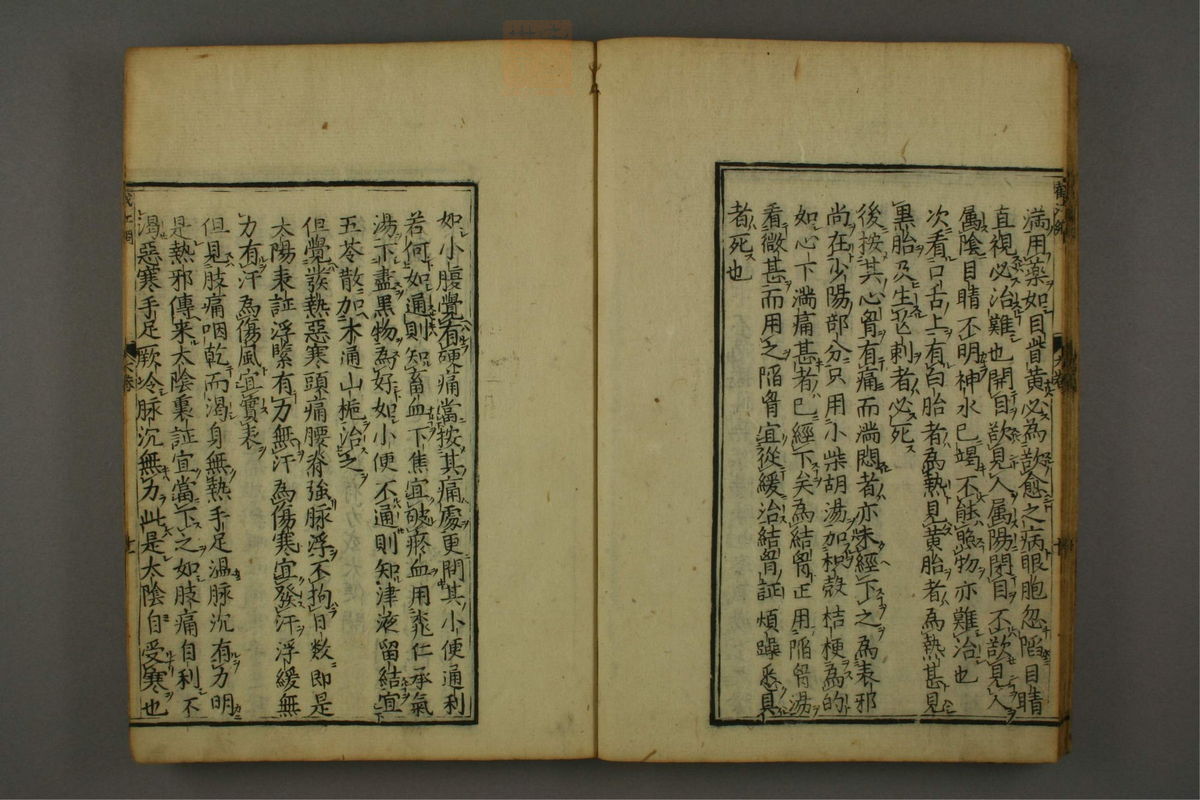 満用藥如目眥黄必為欲愈之病眼胞忽陷目睛
直視必治難也開目欲見人属陽閉目不欲見人
属陰目睛不明神水已竭不能照物亦難治也
次看口舌上有白胎者為熱見黄胎者為熱甚見
黒胎及生芒刺者必死
後按其心胷有痛而満悶者亦未經下之為表邪
尚在少陽部分只用小柴胡湯加枳殻桔梗為的
如心下満痛甚者已經下矣為結胷正用陷胷湯
看微甚而用之陷胷宜從緩治結胷証煩躁悉具
者死也
如小腹覺有硬痛當按其痛處更問其小便通利
若何如通則知畜血下焦宜破瘀血用桃仁承氣
湯下盡黒物為好如小便不通則知津液留結宜
五苓散加木通山梔治之
但覺發熱惡寒頭痛腰脊強脉浮不拘日数即是
太陽表証浮緊有力無汗為傷寒宜發汗浮緩無
力有汗為傷風宜實表
但見肢痛咽乾而渇身無熱手足温脉沉有力明
是熱邪傳来太陰裏証宜當下之如肢痛自利不
渇惡寒手足厥冷脉沉無力此是太陰自受寒也